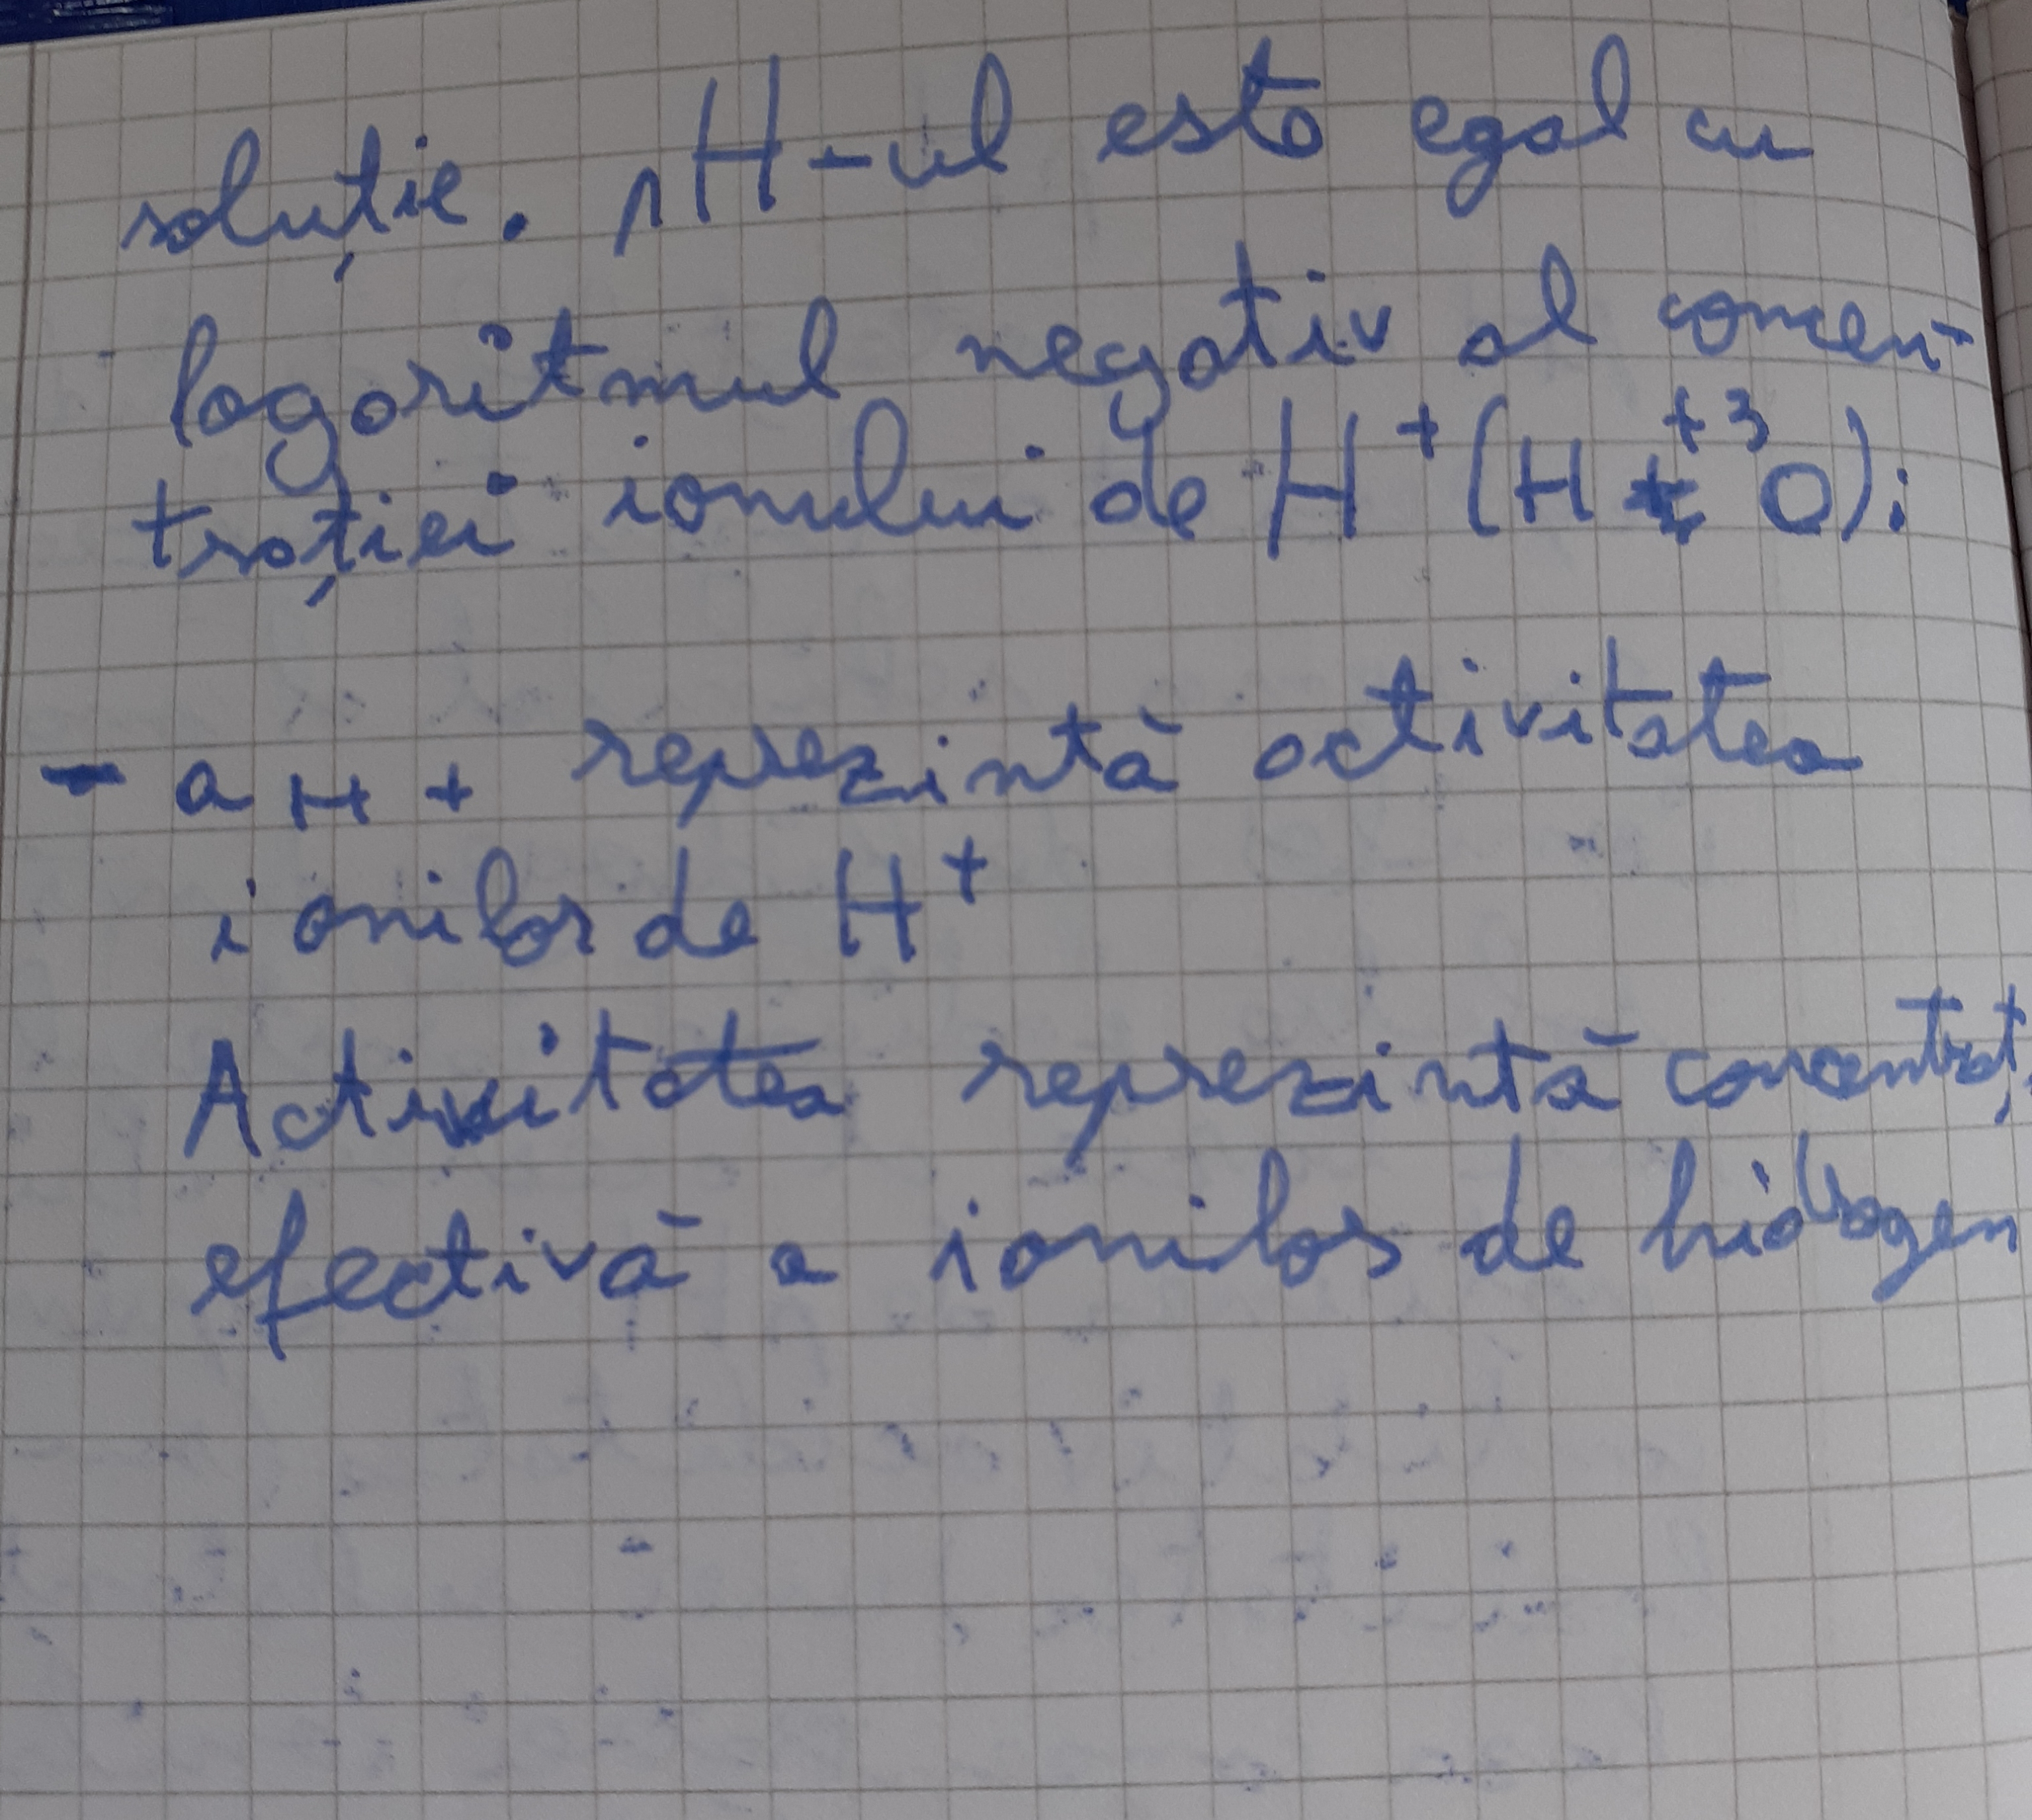 soluție. pH-ul este egal cu
logaritmul negativ al concen-
trației ionului de H⁺(H⁺³O);
- a H + reprezintă activitatea
ionilor de H⁺
Activitatea reprezintă concentraț.
efectivă a ionilor de hidrogen